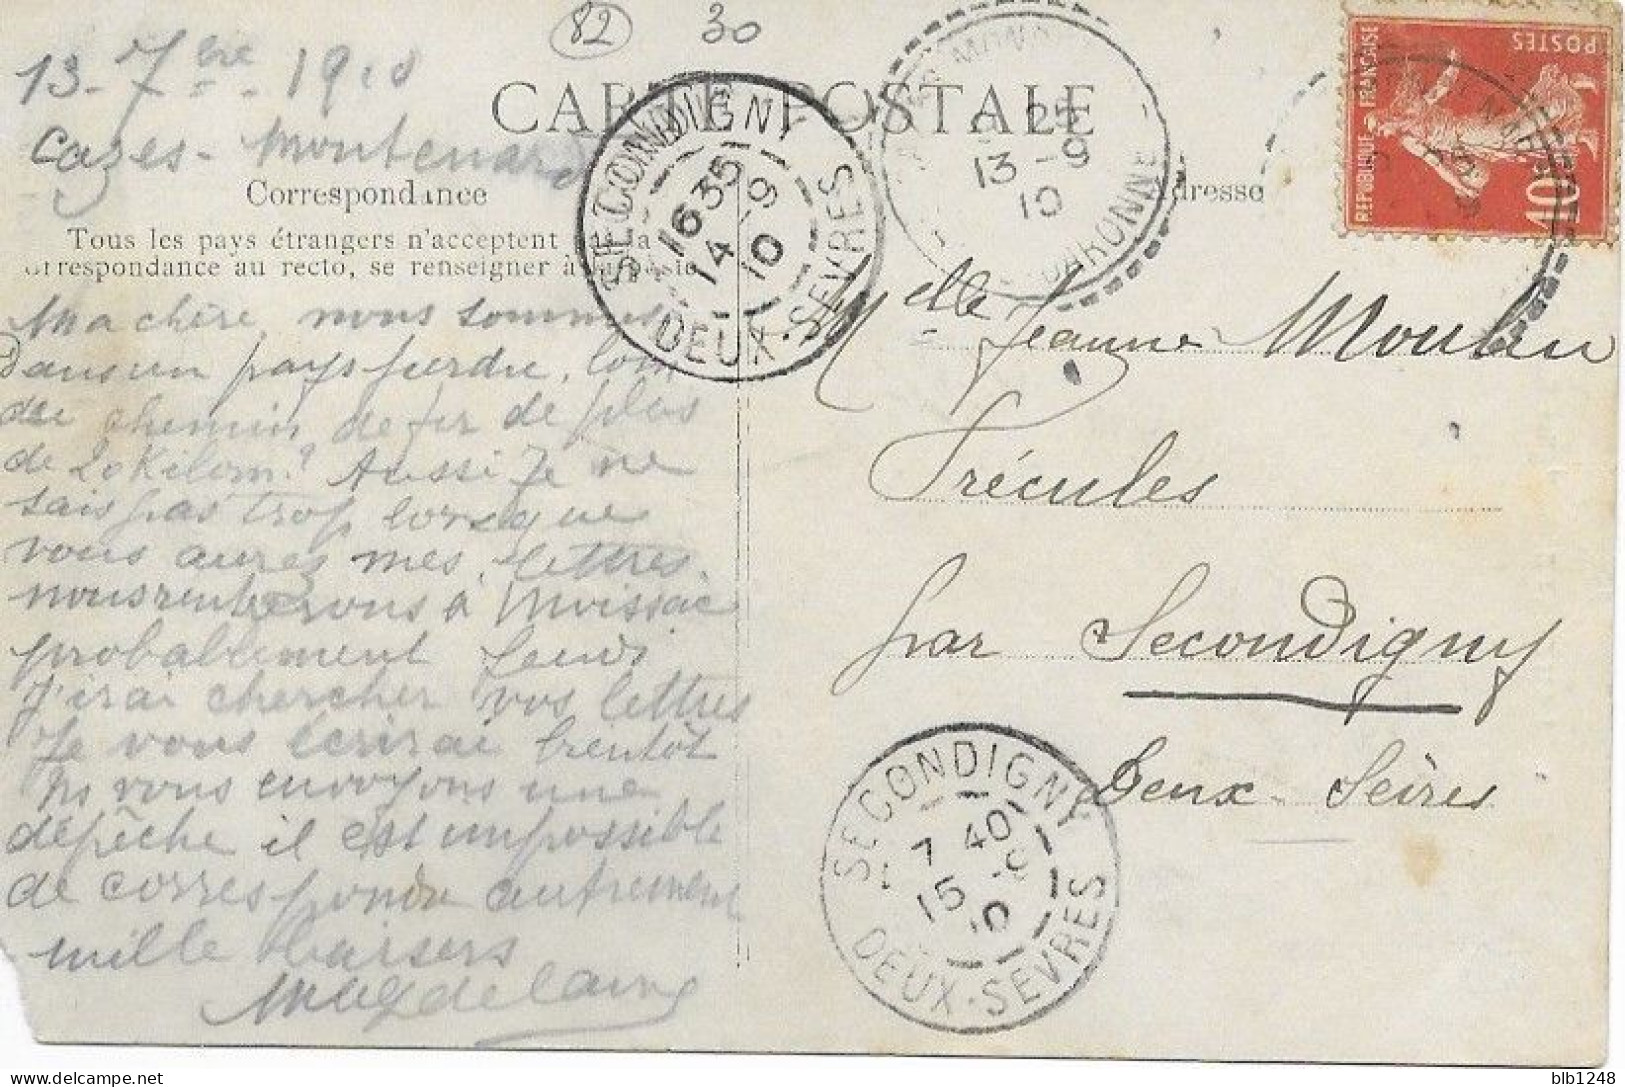 82 30
13 - 7bre - 1910
Cazes - Montenard
CARTE POSTALE
Correspondance
Tous les pays étrangers n'acceptent pas la
correspondance au recto, se renseigner à la poste
Ma chère, nous sommes
Dans un pays perdu, loin
du chemin de fer de plus
de 20 Kilom. Aussi Je ne
sais pas trop lorsque
vous aures mes lettres.
nous rentrerons à Moissac
probablement Jeudi
J'irai chercher vos lettres
Je vous écrirai bientôt
Ns vous envoyons une
dépêche il est impossible
de correspondre autrement
mille baisers
SECONDIGNY
16 35
14 - 9
10
DEUX-SEVRES
25
13 - 9
10
GARONNE
dresse
REPUBLIQUE FRANÇAISE
POSTES
10
Melle Jeanne Moulin
Trécules
par Secondigny
Deux-Sèvres
SECONDIGNY
7 40
15 - 9
10
DEUX-SEVRES
delcampe.net
blb1248